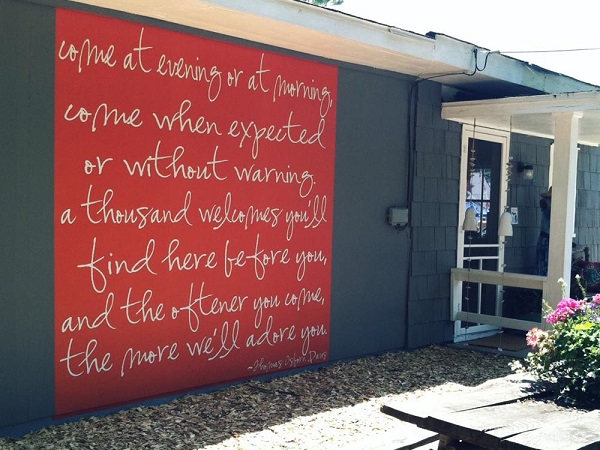 come at evening or at morning,
come when expected
or without warning.
a thousand welcomes you'll
find here before you,
and the oftener you come,
the more we'll adore you.
~Thomas Osborn Davis